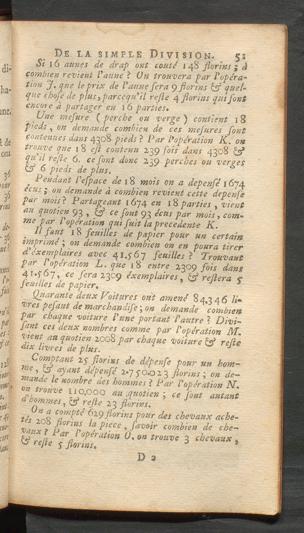 DE LA SIMPLE DIVISION. 51
Si 16 aunes de drap ont couté 148 florins; à
combien revient l'aune? On trouvera par l'opéra-
tion J. que le prix de l'aune sera 9 florins & quel-
que chose de plus, parcequ'il reste 4 florins qui sont
encore à partager en 16 parties.
Une mesure (perche ou verge) contient 18
pieds, on demande combien de ces mesures sont
contenues dans 4308 pieds? Par l'opération K. on
trouve que 18 est contenu 239 fois dans 4308 &
qu'il reste 6. ce sont donc 239 perches ou verges
& 6 pieds de plus.
Pendant l'espace de 18 mois on a depensé 1674
écus; on demande à combien revient cette depense
par mois? Partageant 1674 en 18 parties, vient
au quotien 93, & ce sont 93 écus par mois, com-
me par l'opération qui suit la precedente K.
Il faut 18 feuilles de papier pour un certain
imprimé; on demande combien on en poura tirer
d'éxemplaires avec 41.567 feuilles? Trouvant
par l'opération L. que 18 entre 2309 fois dans
41.567, ce sera 2309 éxemplaires, & restera 5
feuilles de papier.
Quarante deux Voitures ont amené 84,346 li-
vres pesant de marchandise; on demande combien
par chaque voiture l'une portant l'autre? Divi-
sant ces deux nombres comme par l'opération M.
vient au quotien 2008 par chaque voiture & reste
dix livres de plus.
Comptant 25 florins de dépense pour un hom-
me, & ayant dépensé 2.750,023 florins; on de-
mande le nombre des hommes? Par l'opération N.
on trouve 110,000 au quotien; ce sont autant
d'hommes, & reste 23 florins.
On a compté 629 florins pour des chevaux ache-
tés 208 florins la piece, savoir combien de che-
vaux? Par l'opération O. on trouve 3 chevaux,
& reste 5 florins.
D 2